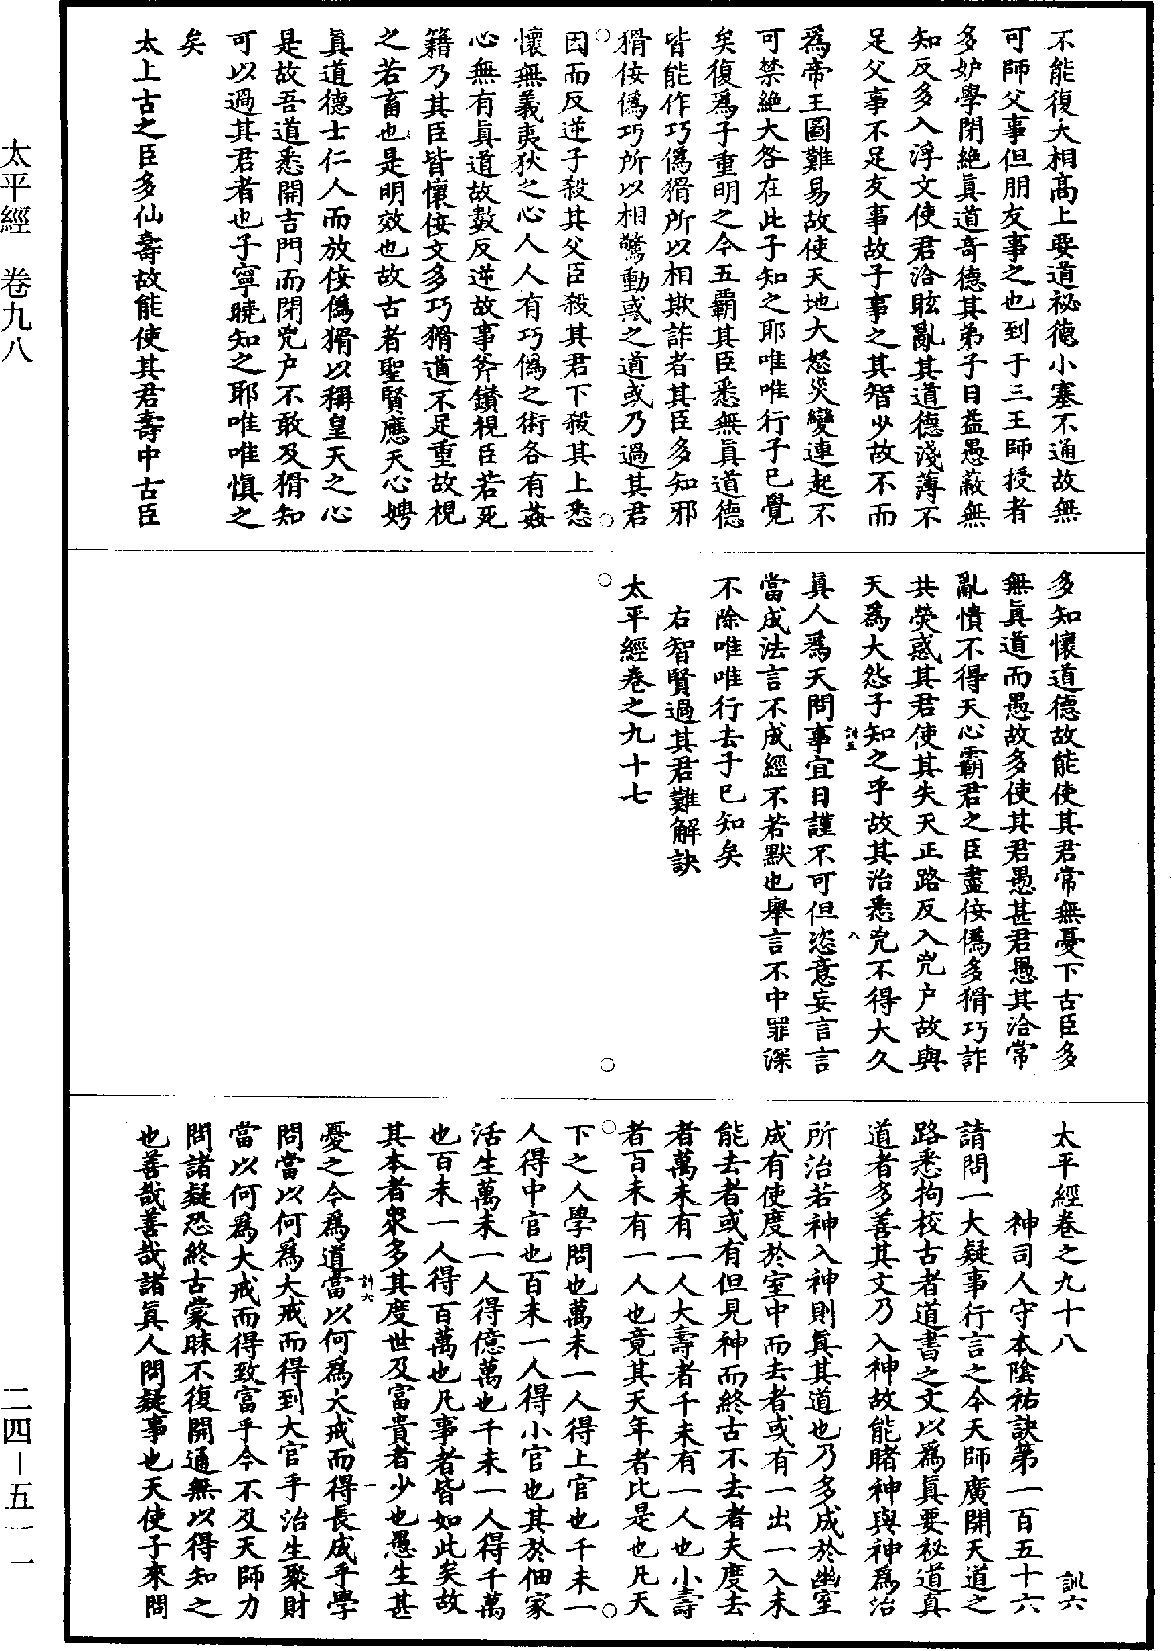 不能復大相高上要道祕德小塞不通故無
可師父事但朋友事之也到于三王師授者
多妒學閉絶真道奇德其弟子日益愚蔽無
知反多入浮文使君治眩亂其道德淺薄不
足父事不足友事故子事之其智少故不而
為帝王圖難易故使天地大怒災變連起不
可禁絶大咎在此子知之耶唯唯行子已覺
矣復為子重明之今五霸其臣悉無真道德
皆能作巧偽猾所以相欺詐者其臣多知邪
猾佞偽巧所以相驚動惑之道或乃過其君
因而反逆子殺其父臣殺其君下殺其上悉
懷無義夷狄之心人人有巧偽之術各有姦
心無有真道故數反逆故事斧鑕視臣若死
籍乃其臣皆懷佞文多巧猾道不足重故視
之若畜也是明效也故古者聖賢應天心娉
真道德士仁人而放佞偽猾以稱皇天之心
是故吾道悉開吉門而閉兇户不敢及猾知
可以過其君者也子寧曉知之耶唯唯慎之
矣
太上古之臣多仙壽故能使其君壽中古臣
多知懷道德故能使其君常無憂下古臣多
無真道而愚故多使其君愚甚君愚其治常
亂憒不得天心霸君之臣盡佞偽多猾巧詐
共熒惑其君使其失天正路反入兇户故與
天為大怨子知之乎故其治悉兇不得大久
訓五
八
真人為天問事宜日謹不可但恣意妄言言
當成法言不成經不若默也舉言不中罪深
不除唯唯行去子已知矣
右智賢過其君難解訣
太平經卷之九十七
太平經卷之九十八
訓六
神司人守本陰祐訣第一百五十六
請問一大疑事行言之今天師廣開天道之
路悉拘校古者道書之文以為真要祕道真
道者多善其文乃入神故能睹神與神為治
所治若神入神則真其道也乃多成於幽室
成有使度於室中而去者或有一出一入未
能去者或有但見神而終古不去者夫度去
者萬未有一人大壽者千未有一人也小壽
者百未有一人也竟其天年者比是也凡天
下之人學問也萬未一人得上官也千未一
人得中官也百未一人得小官也其於佃家
活生萬未一人得億萬也千未一人得千萬
也百未一人得百萬也凡事者皆如此矣故
其本者衆多其度世及富貴者少也愚生甚
訓六
一
憂之今為道當以何為大戒而得長成乎學
問當以何為大戒而得到大官乎治生聚財
當以何為大戒而得致富乎今不及天師力
問諸疑恐終古蒙昧不復開通無以得知之
也善哉善哉諸真人問疑事也天使子來問
太平經 卷九八
二四－五一一